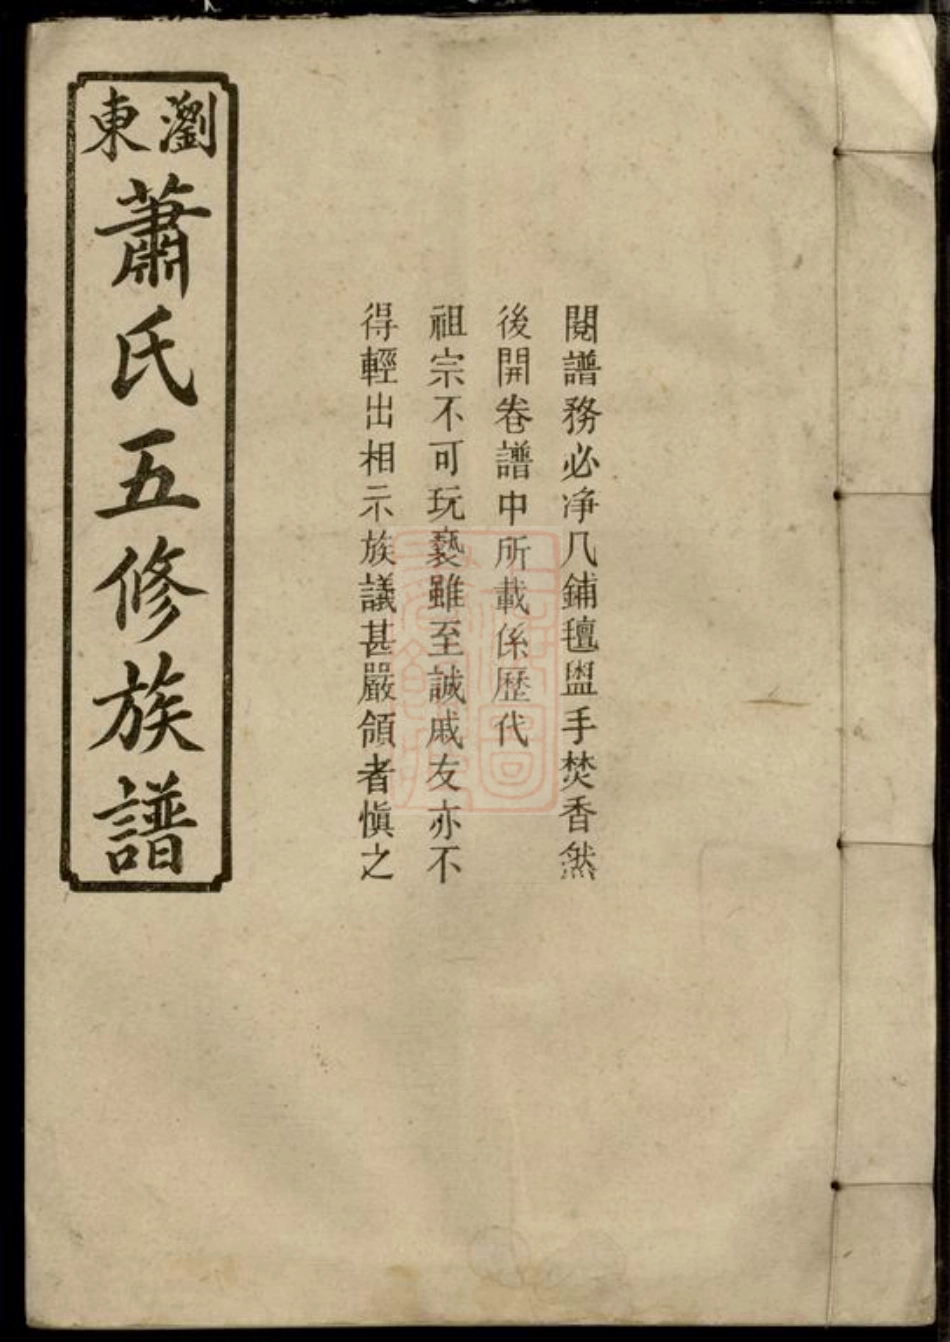 閱譜務必净几鋪氊盥手焚香然
後開卷譜中所載係歷代
祖宗不可玩褻雖至誠戚友亦不
得輕出相示族議甚嚴領者慎之
瀏東
蕭氏五修族譜